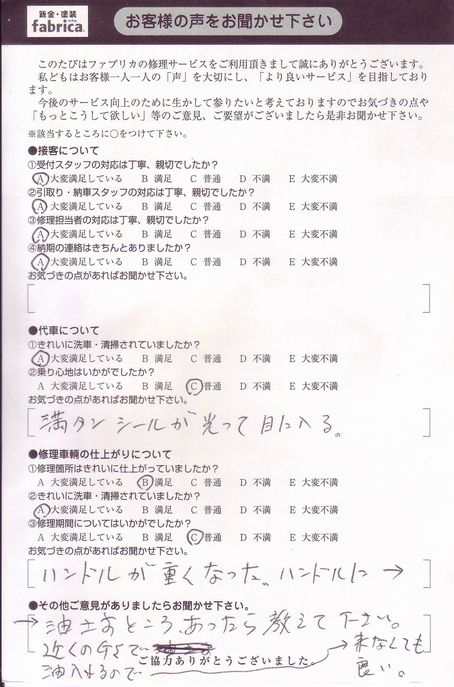 鈑金・塗装
fabrica
お客様の声をお聞かせ下さい
このたびはファブリカの修理サービスをご利用頂きまして誠にありがとうございます。
私どもはお客様一人一人の「声」を大切にし、「より良いサービス」を目指しており
ます。
今後のサービス向上のために生かして参りたいと考えておりますのでお気づきの点や
「もっとこうして欲しい」等のご意見、ご要望がございましたら是非お聞かせ下さい。
※該当するところに○をつけて下さい。
●接客について
①受付スタッフの対応は丁寧、親切でしたか？
A 大変満足している B 満足 C 普通 D 不満 E 大変不満
②引取り・納車スタッフの対応は丁寧、親切でしたか？
A 大変満足している B 満足 C 普通 D 不満 E 大変不満
③修理担当者の対応は丁寧、親切でしたか？
A 大変満足している B 満足 C 普通 D 不満 E 大変不満
④納期の連絡はきちんとありましたか？
A 大変満足している B 満足 C 普通 D 不満 E 大変不満
お気づきの点があればお聞かせ下さい。
●代車について
①きれいに洗車・清掃されていましたか？
A 大変満足している B 満足 C 普通 D 不満 E 大変不満
②乗り心地はいかがでしたか？
A 大変満足している B 満足 C 普通 D 不満 E 大変不満
お気づきの点があればお聞かせ下さい。
満タンシールが光って目に入る。
●修理車輌の仕上がりについて
①修理箇所はきれいに仕上がっていましたか？
A 大変満足している B 満足 C 普通 D 不満 E 大変不満
②きれいに洗車・清掃されていましたか？
A 大変満足している B 満足 C 普通 D 不満 E 大変不満
③修理期間についてはいかがでしたか？
A 大変満足している B 満足 C 普通 D 不満 E 大変不満
お気づきの点があればお聞かせ下さい。
ハンドルが重くなった。ハンドルに →
●その他ご意見がありましたらお聞かせ下さい。
→ 油土さところ、あったら教えて下さい。
近くの
油入れるので
→ 来なくても
良い。
ご協力ありがとうございました。